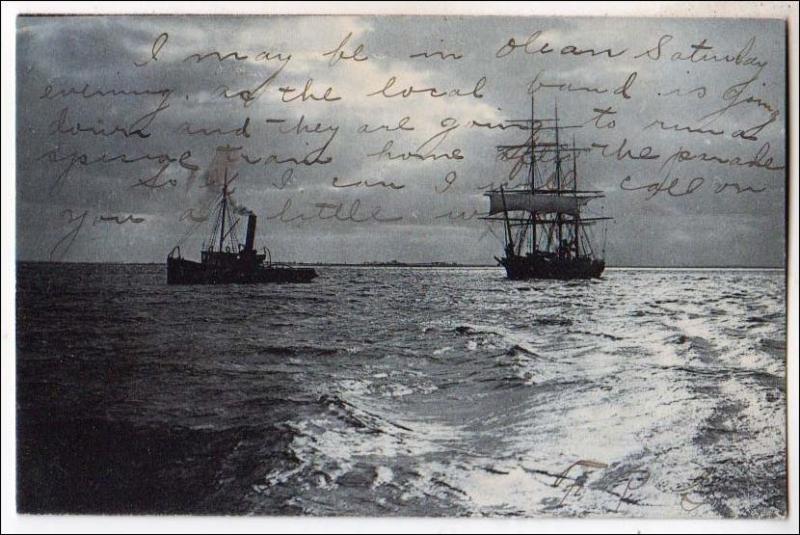 I may be in Olean Saturday
evening. as the local band is going
down and they are going to run a
special train home after the parade
So if I can I will call on
you a little w
F. P.